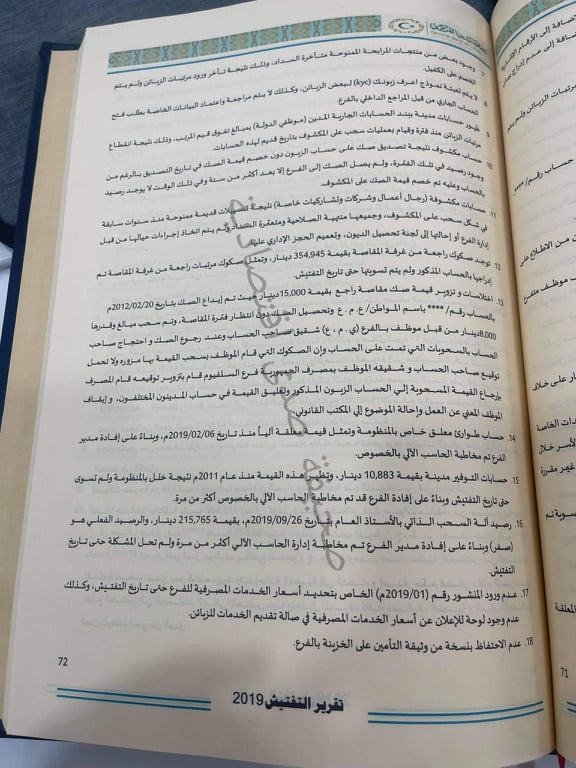 7. وجود بعض من منتجات المرابحة الممنوحة متأخرة السداد، وذلك نتيجة تأخر ورود مرتبات الزبائن ولم يتم
الخصم على الكفيل.
8. لا يتم تعبئة نموذج اعرف زبونك (kyc) لبعض الزبائن، وكذلك لا يتم مراجعة واعتماد البيانات الخاصة بطلب فتح
الحساب الجاري من قبل المراجع الداخلي بالفرع.
9. ظهور حسابات مدينة ببند الحسابات الجارية المدين (موظفي الدولة) بمبالغ تفوق قيم المرتب، وذلك نتيجة انقطاع
مرتبات الزبائن منذ فترة وقيام بعمليات سحب على المكشوف بتاريخ قديم لهذه الحسابات.
10. حساب مكشوف نتيجة تصديق صك على حساب الزبون دون خصم قيمة الصك في تاريخ التصديق بالرغم من
وجود رصيد في تلك الفترة، ولم يصل الصك إلى الفرع إلا بعد أكثر من سنة وفي ذلك الوقت لا يوجد رصيد
بالحساب وعليه تم خصم قيمة الصك على المكشوف.
11. حسابات مكشوفة (رجال أعمال وشركات وتشاركيات خاصة) نتيجة تسهيلات قديمة ممنوحة منذ سنوات سابقة
في شكل سحب على المكشوف، وجميعها منتهية الصلاحية ومتعثرة السداد ولم يتم اتخاذ إجراءات حيالها من قبل
إدارة الفرع أو إحالتها إلى لجنة تحصيل الديون، وتعميم الحجز الإداري عليها.
12. توجد صكوك راجعة من غرفة المقاصة بقيمة 354,945 دينار، وتمثل صكوك مرتبات راجعة من غرفة المقاصة تم
إدراجها بالحساب المذكور ولم يتم تسويتها حتى تاريخ التفتيش.
13. اختلاسات و تزوير قيمة صك مقاصة راجع بقيمة 15,000دينار حيث تم إيداع الصك بتاريخ 2012/02/20م
بالحساب رقم/ **** باسم المواطن/ ع . م . ع وتحصيل الصك دون انتظار لفترة المقاصة، وتم سحب مبالغ وقدرها
8.000دينار من قبل موظف بالفرع (ي . م . ع) شقيق صاحب الحساب وعند رجوع الصك و احتجاج صاحب
الحساب بالسحوبات التي تمت على الحساب وإن الصكوك التي قام الموظف بسحب القيمة بها مزوره ولا تحمل
توقيع صاحب الحساب و شقيقه الموظف بمصرف الجمهورية فرع السلفيوم قام بتزوير توقيعه قام المصرف
بإرجاع القيمة المسحوبة إلي الحساب الزبون المذكور وتعليق القيمة في حساب المدينون المختلفون، و إيقاف
الموظف المعني عن العمل وإحالة الموضوع إلي المكتب القانوني.
14. حساب طوارئ معلق خاص بالمنظومة وتمثل قيمة معلقة آلياً منذ تاريخ 2019/02/06م، وبناءً على إفادة مدير
الفرع تم مخاطبة الحاسب الآلي بالخصوص.
15. حسابات التوفير مدينة بقيمة 10,883 دينار، وتظهر هذه القيمة منذ عام 2011م نتيجة خلل بالمنظومة ولم تسوى
حتى تاريخ التفتيش وبناءً على إفادة الفرع قد تم مخاطبة الحاسب الآلي بالخصوص أكثر من مرة.
16. رصيد آلة السحب الذاتي بالأستاذ العام بتاريخ 2019/09/26م، بقيمة 215,765 دينار، والرصيد الفعلي هو
(صفر) وبناءً على إفادة مدير الفرع تم مخاطبة إدارة الحاسب الآلي أكثر من مرة ولم تحل المشكلة حتى تاريخ
التفتيش.
17. عدم ورود المنشور رقم (2019/01م) الخاص بتحديد أسعار الخدمات المصرفية للفرع حتى تاريخ التفتيش، وكذلك
عدم وجود لوحة للإعلان عن أسعار الخدمات المصرفية في صالة تقديم الخدمات للزبائن.
18. عدم الاحتفاظ بنسخة من وثيقة التأمين على الخزينة بالفرع.
72
تقرير التفتيش 2019
صحيفة صدى الاقتصادية
71